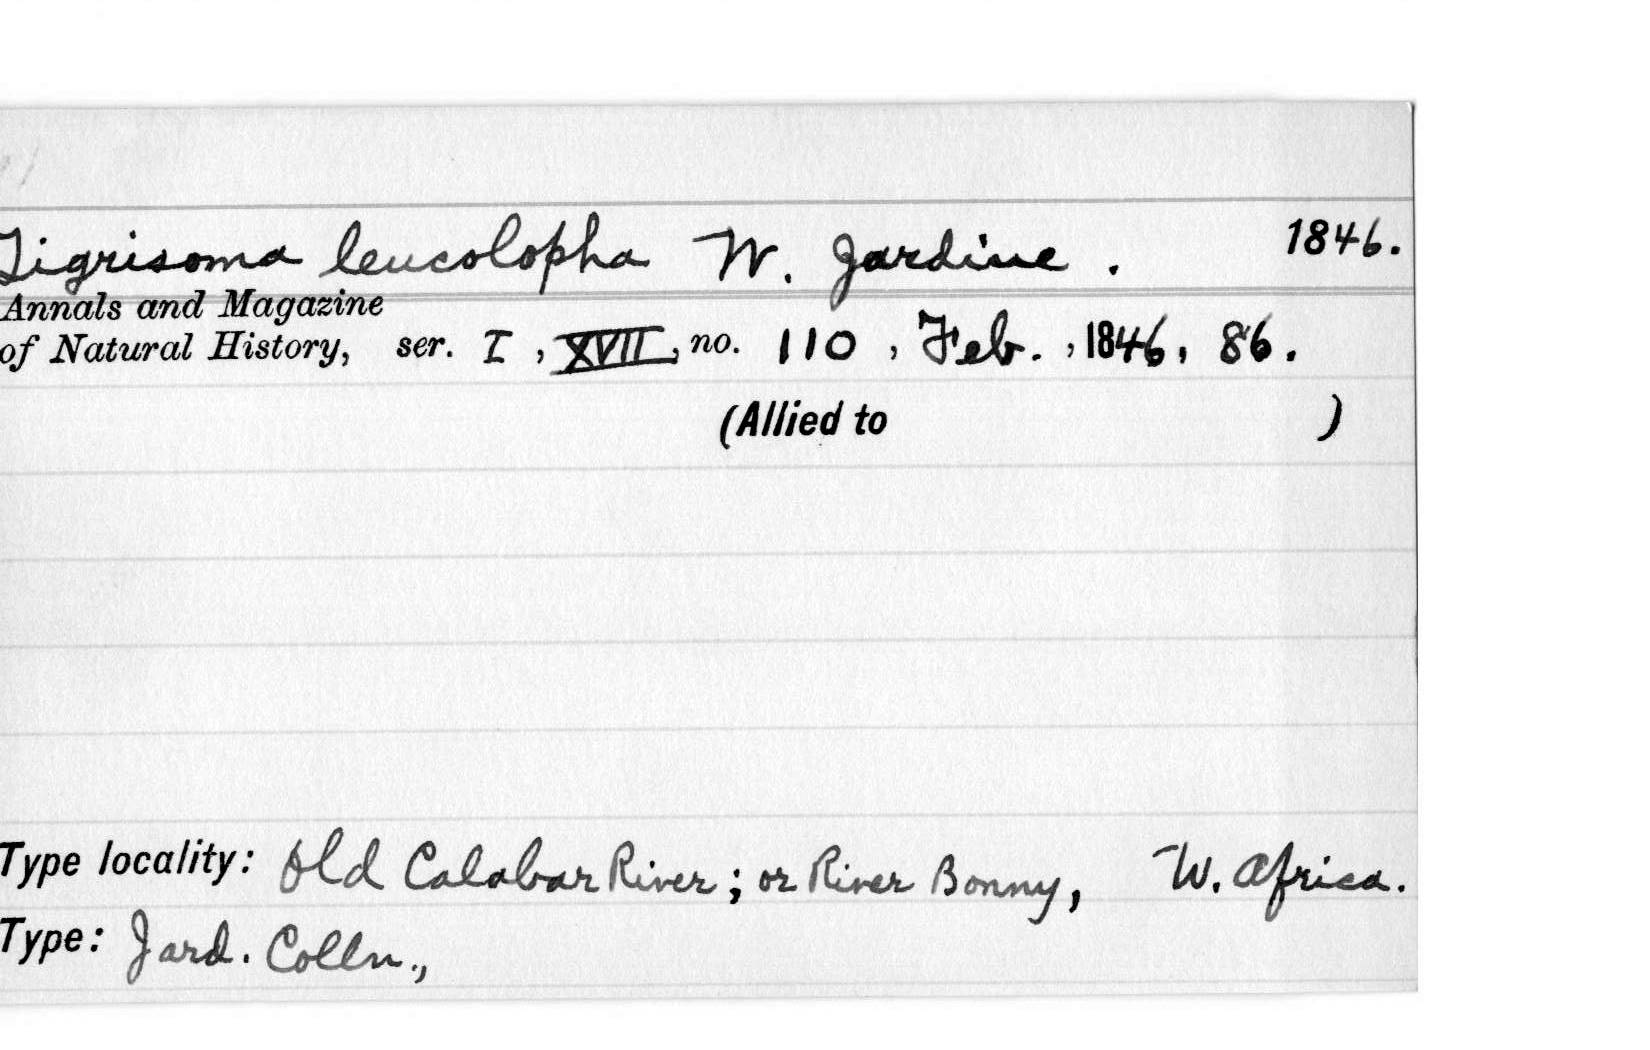 Tigrisoma leucolopha W. Jardine. 1846.
Annals and Magazine
of Natural History, ser. I, XVII, no. 110, Feb., 1846, 86.
(Allied to )
Type locality: Old Calabar River; or River Bonny, W. Africa.
Type: Jard. Colln.,